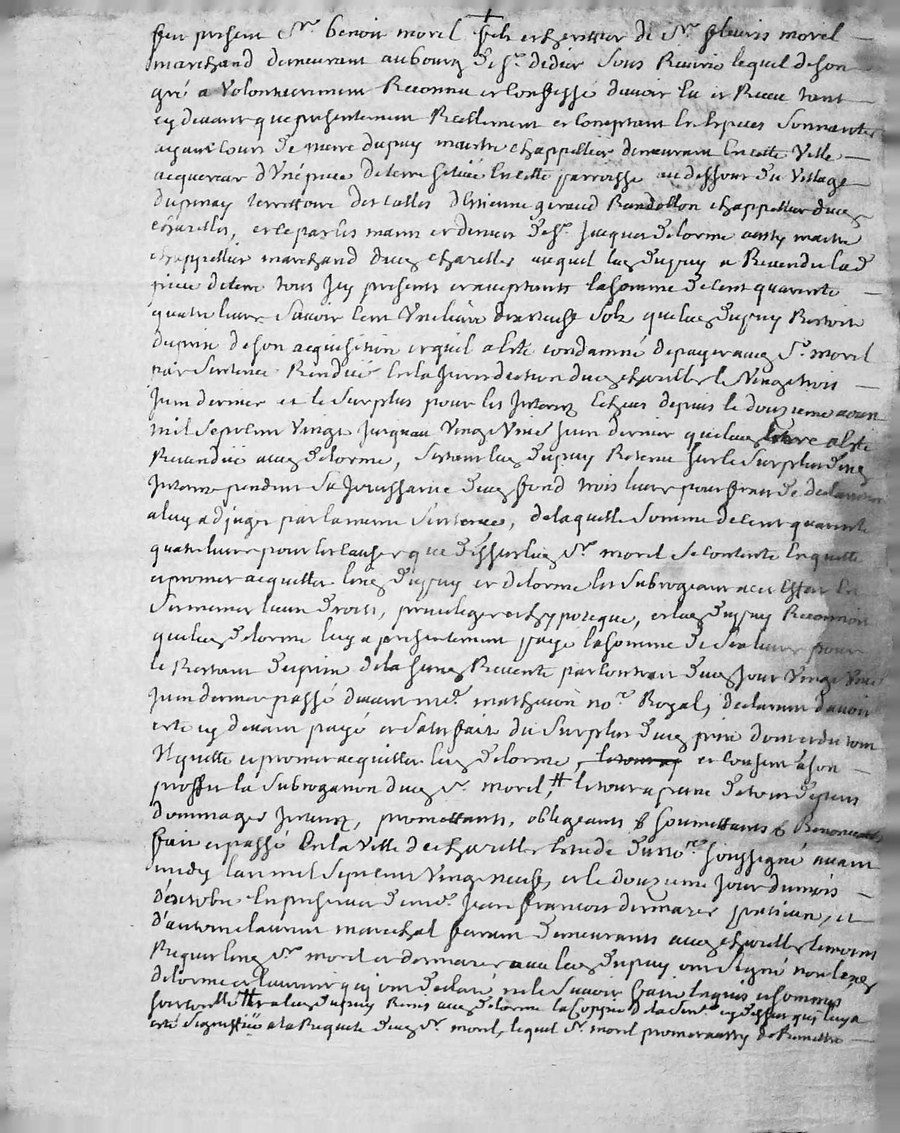 fut present Sr. benoit morel fils et heritier de Sr. fleuris morel
marchand demeurant au bourg de St. didier sous Riverie lequel de son
gré a volontairement Reconnu et confessé d'avoir eu et Receu tant
cy devant que presentement Reellement et comptant en Especes sonnantes
ayant cours de pierre dupuy maitre chappellier demeurant en cette ville
acquereur d'une piece de terre scituée en cette parroisse au dessour du village
dupinay territoire des calles d'Etienne giraud chappellier dud
chazelles, et ce par les mains et deniers de Sr. Jacques delorme aussy maitre
chappellier marchand dud chazelles auquel led dupuy a Revendu lad
piece de terre tous Icy presents et acceptants la somme de cent quarente
quatre livres savoir cent une livre dixneuf sols que led dupuy Restoit
du prix de son acquisition et quil a eté condamné de payer aud Sr. morel
par sentence Rendüe en la Jurisdiction dud chazelles le vingt trois
Juin dernier et le surplus pour les Interets echeus depuis le douzieme aoust
mil sept cent vingt Jusqu'au vingt une Juin dernier que lad terre a eté
Revendüe aud delorme, led dupuy Retenu sur le surplus desd
Interets pendant sa Jouissance dud fond trois livres pour frais de declaration
a luy adjuger par la meme sentence, de laquelle somme de cent quarente
quatre livres pour les causes que dessus led Sr. morel se contente En quitte
et promet acquitter led dupuy et delorme les subrogeant a cet effet En
ses memes lieux droits, privileges et hypoteque, et led dupuy Reconnoit
que led delorme luy a presentement payé la somme de six livres pour
le Restant du prix de la susd Revente par contrat dud Jour vingt une
Juin dernier passé devant me. mathevon nore. Royal, declarant d'avoir
eté cy devant payé et satisfait du surplus dud prix dont et du tout
Il quitte et promet acquitter led delorme, et consent a son
proffit la subrogation dud Sr. morel, # le tout a peine de tous depens
dommages Interets, promettants, obligeants & soumettants & Renonceants
fait et passé En la ville de chazelles etude du nore. soussigné avant
midy l'an mil sept cent vingt neuf, et le douzieme jour du mois
d'octobre En presence de me. Jean francois dumarer praticien, et
d'antoine laurent marechal ferrant demeurants aud chazelles temoins
Requis led Sr. morel et dumarer avec led dupuy ont signé non led
delorme et laurent qui ont declaré ne le savoir faire enquis et sommés
# a led dupuy Remis aud delorme la Copie de la sentce. cy dessus qui luy a
eté signiffiée a la Requete dud Sr. morel, lequel Sr. morel promet aussy de Remettre